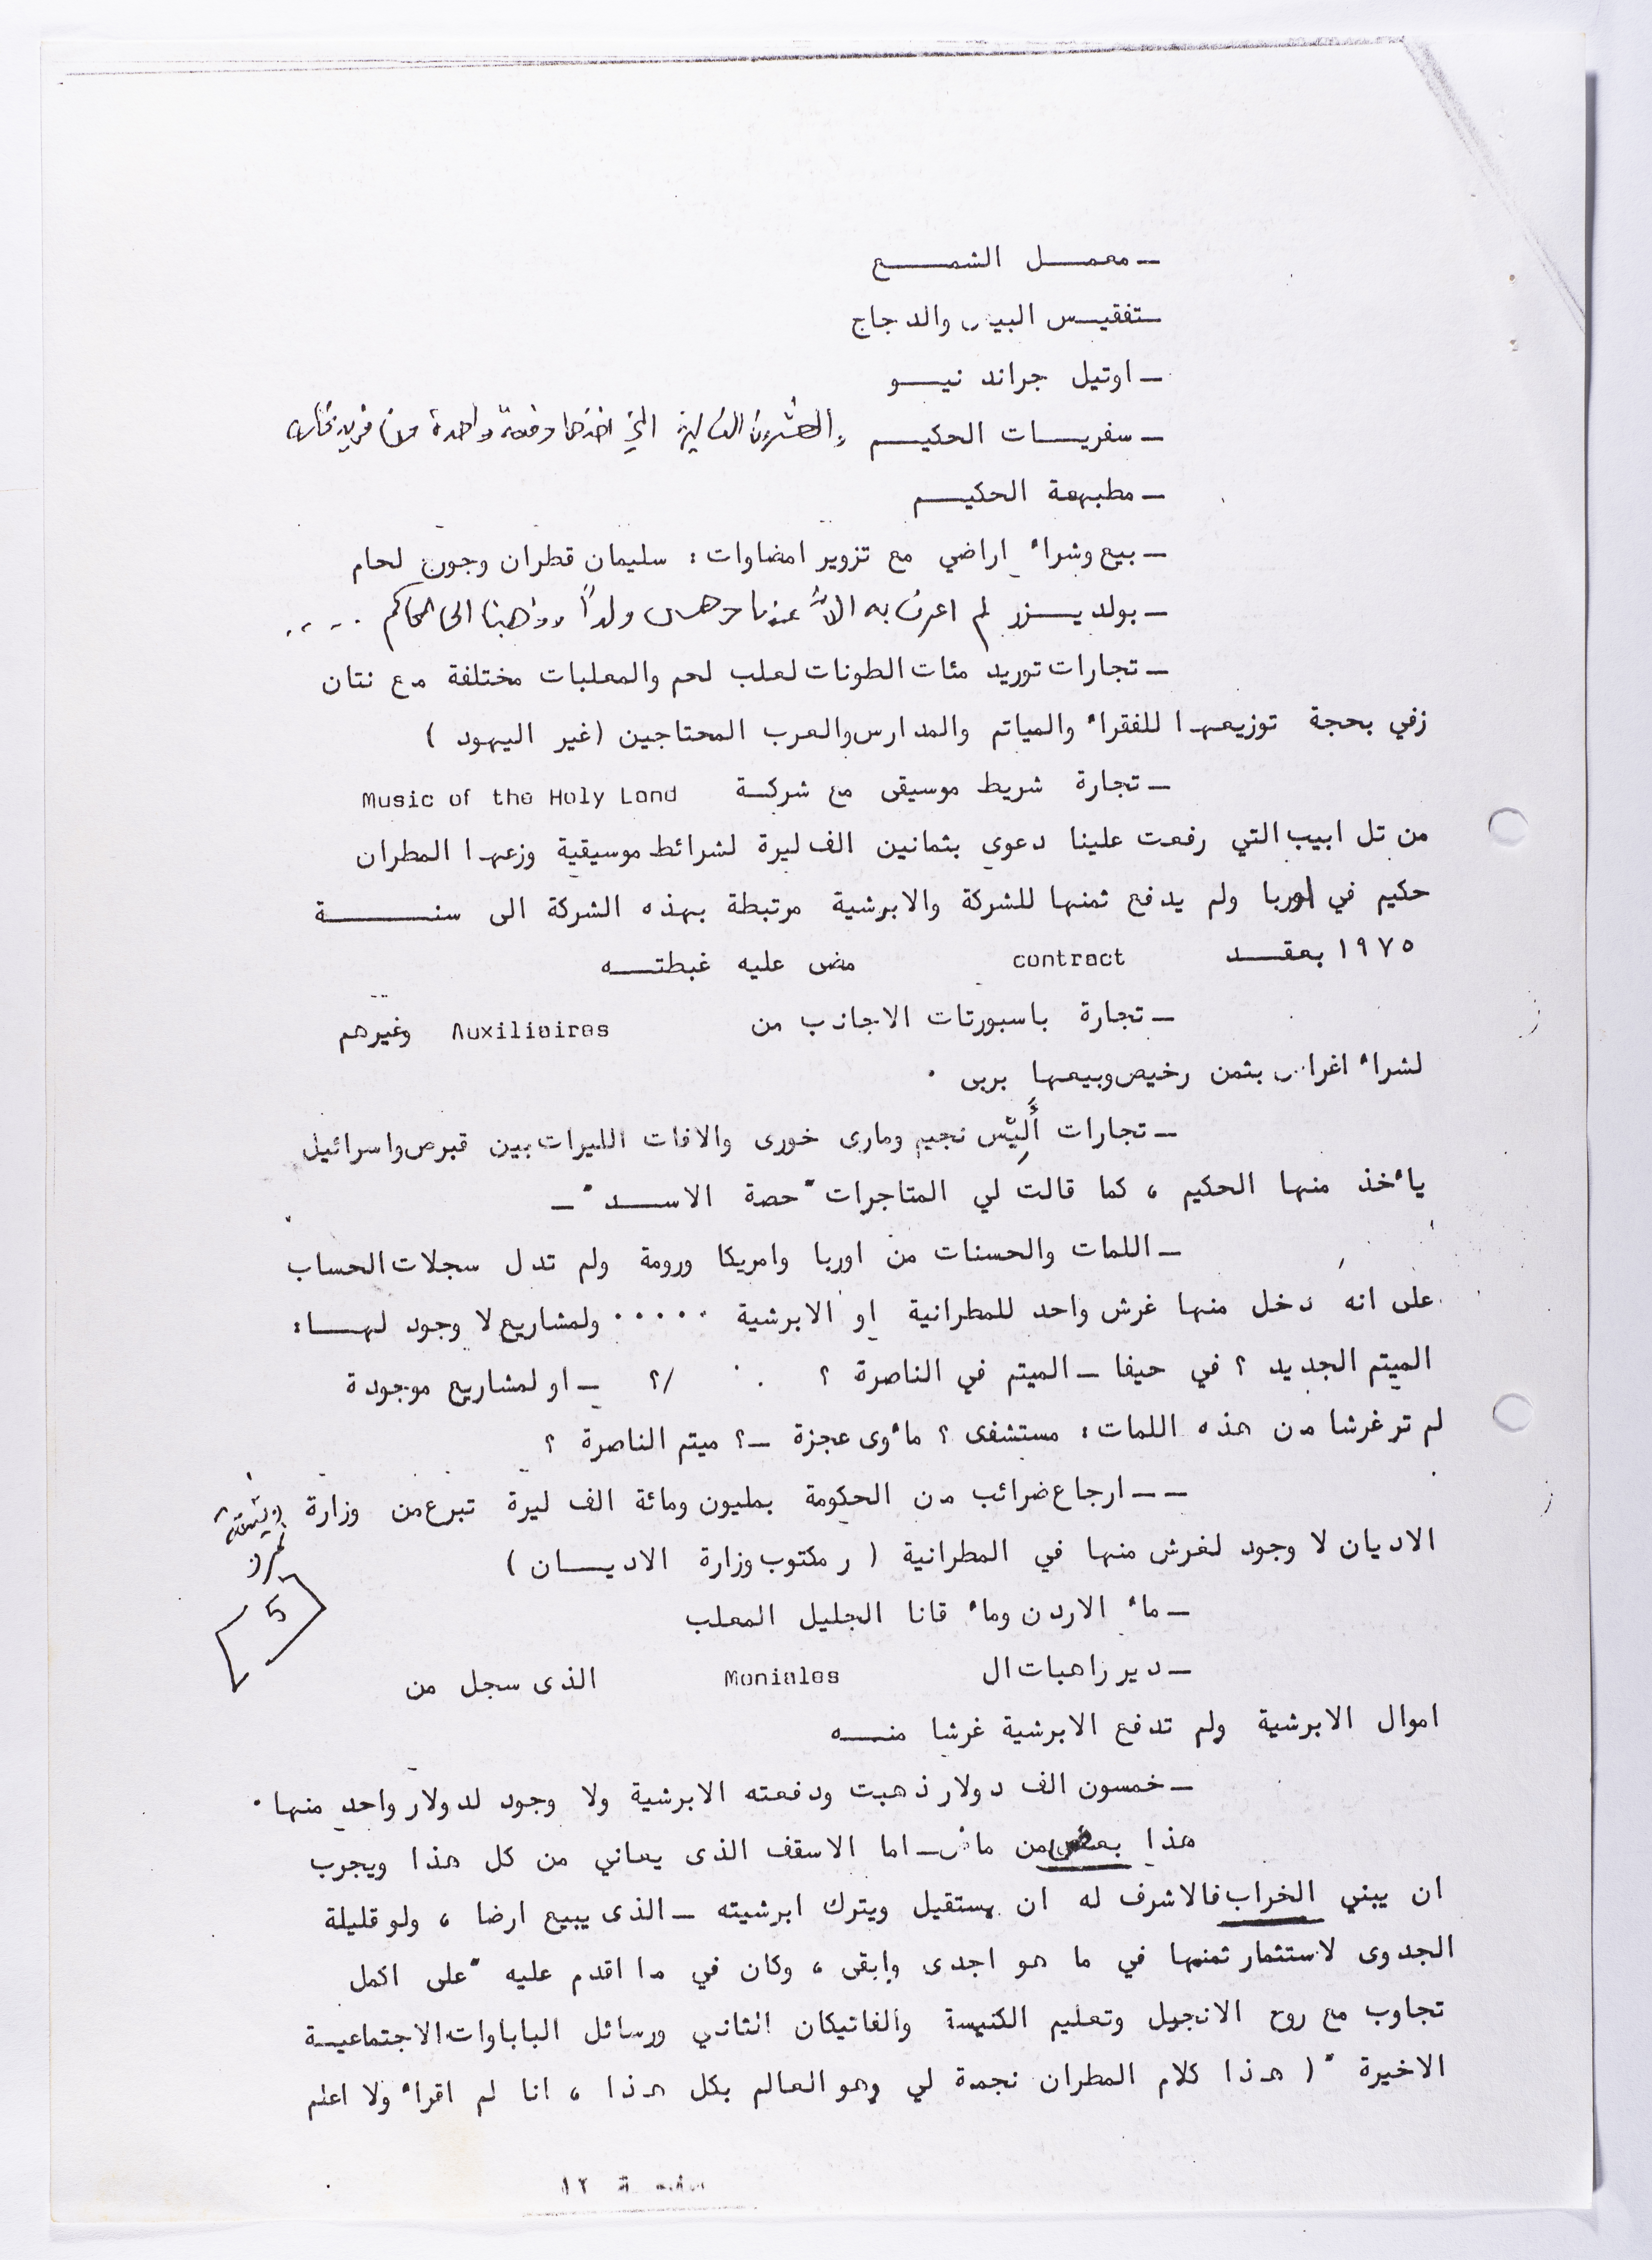 ـ معمـــل الشمـــع
ـ تفقيـــس البيض والدجاج
ـ اوتيل جراند نيـــو
ـ سفريـــات الحكيـــم التي اخذها دفعة واحدة من فريد
ـ مطبهعة الحكيـــم
ـ بيع وشراء اراضي مع تزوير امضاوات : سليمان قطران وجون لحام
ـ بولديـــزر لم اعرف به الا عندما دهس ولداً وذهبنا الى المحاكم .....
ـ تجارات توريد مئات الطونات لعلب لحم والمعلبات مختلفة مع نتان
زفي بحجة توزيعها للفقراء والمياتم والمدارس والعرب المحتاجين (غير اليهود )
ـ تجارة شريط موسيقى مع شركـــة Music of the Holy Land
من تل ابيب التي رفعت علينا دعوى بثمانين الف ليرة لشرائط موسيقية وزعها المطران
حكيم في اوربا ولم يدفع ثمنها للشركة والابرشية مرتبطة بهذه الشركة الى سنـــة
١٩٧٥ بعقـــد contract مضى عليه غبطتـــه
ـ تجارة باسبورتات الاجانب من Auxiliaires وغيرهم
لشراء اغراض بثمن رخيص وبيعها بربى .
ـ تجارات أَلِيْس نجيم ومارى خورى والافات الليرات بين قبرص واسرائيل
يأخذ منها الحكيم ، كما قالت لي المتاجرات "حصة الاســـد" ـ
ـ اللمات والحسنات من اوربا وامريكا ورومة ولم تدل سجلات الحساب
على انه دخل منها غرش واحد للمطرانية او الابرشية ..... ولمشاريع لا وجود لهـــا :
الميتم الجديد ؟ في حيفا ـ الميتم في الناصرة ؟ /؟ ـ او لمشاريع موجودة
لم تر غرشا من هذه اللمات : مستشفى ؟ مأوى عجزة ـ ؟ ميتم الناصرة ؟
ـ ـ ارجاع ضرائب من الحكومة بمليون ومائة الف ليرة تبرع من وزارة
وثيقة
5
الاديان لا وجود لغرش منها في المطرانية ( ر مكتوب وزارة الاديـــان )
ـ ماء الاردن وماء قانا الجليل المعلب
ـ دير راهبات ال Moniales الذى سجل من
اموال الابرشية ولم تدفع الابرشية غرشا منـــه
ـ خمسون الف دولار ذهبت ودفعته الابرشية ولا وجود لدولار واحد منها .
هذا بعض من ماض ـ اما الاسقف الذى يعاني من كل هذا ويجرب
ان يبني الخراب فالاشرف له ان يستقيل ويترك ابرشيته ـ الذى يبيع ارضا ، ولو قليلة
الجدوى لاستثمار ثمنها في ما هو اجدى وابقى ، وكان في ما اقدم عليه "على اكمل
تجاوب مع روح الانجيل وتعليم الكنيسة والفاتيكان الثاني ورسائل الباباوات الاجتماعيـــة
الاخيرة" ( هذا كلام المطران نجمة لي وهو العالم بكل هذا ، انا لم اقرأ ولا اعلم
صفحـة ١٢